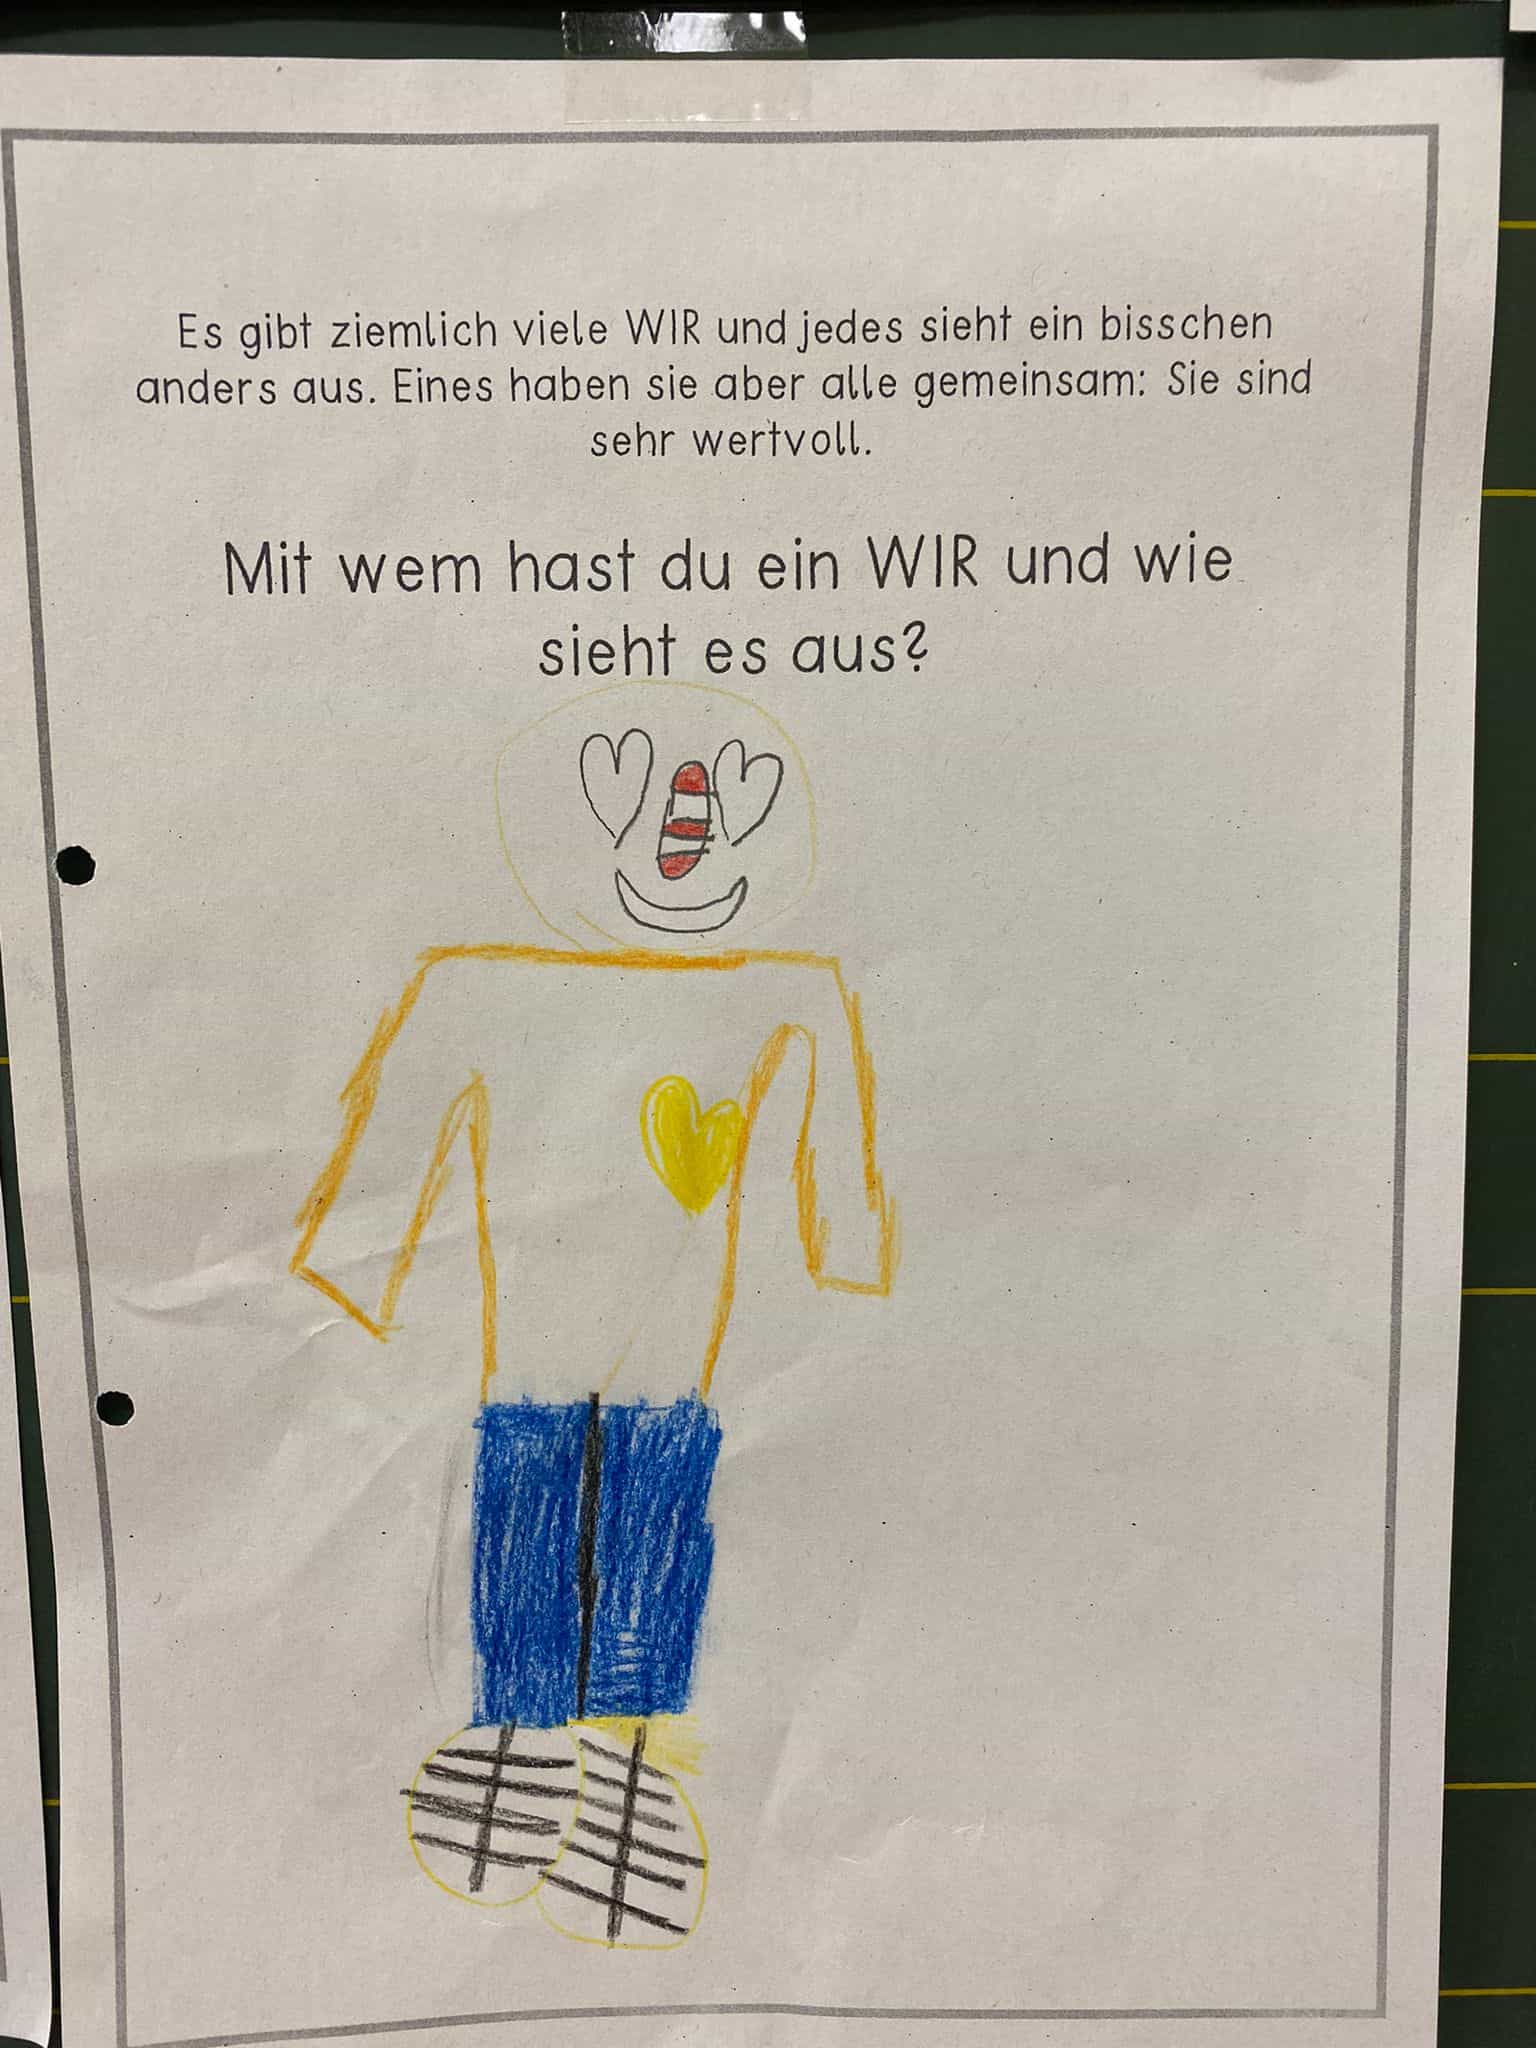 Es gibt ziemlich viele WIR und jedes sieht ein bisschen
anders aus. Eines haben sie aber alle gemeinsam: Sie sind
sehr wertvoll.
Mit wem hast du ein WIR und wie
sieht es aus?